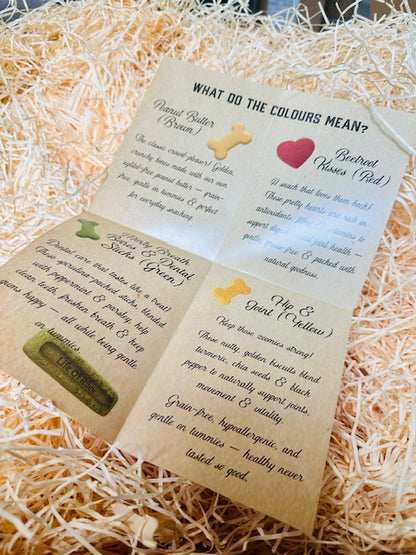 WHAT DO THE COLOURS MEAN?
Peanut Butter
(Brown)
The classic crowd-pleaser! Golden,
crunchy bones made with our own
xylitol-free peanut butter — grain-
free, gentle on tummies & perfect
for everyday snacking.
Beetroot
Kisses (Red)
A snack that loves them back!
These pretty hearts are rich in
antioxidants, fibre & to
support and joint health —
gentle, grain-free & packed with
natural goodness.
Minty Breath
& Dental
Sticks (Green)
Dental care that tastes like a treat!
These spirulina-packed sticks blended
with peppermint & parsley help
clean teeth, freshen breath & keep
gums happy — all while being gentle
on tummies.
Hip &
Joint (Yellow)
Keep those zoomies strong!
These nutty, golden biscuits blend
turmeric, chia seeds & black
pepper to naturally support joints,
movement & vitality.
Grain-free, hypoallergenic, and
gentle on tummies — healthy never
tasted so good.